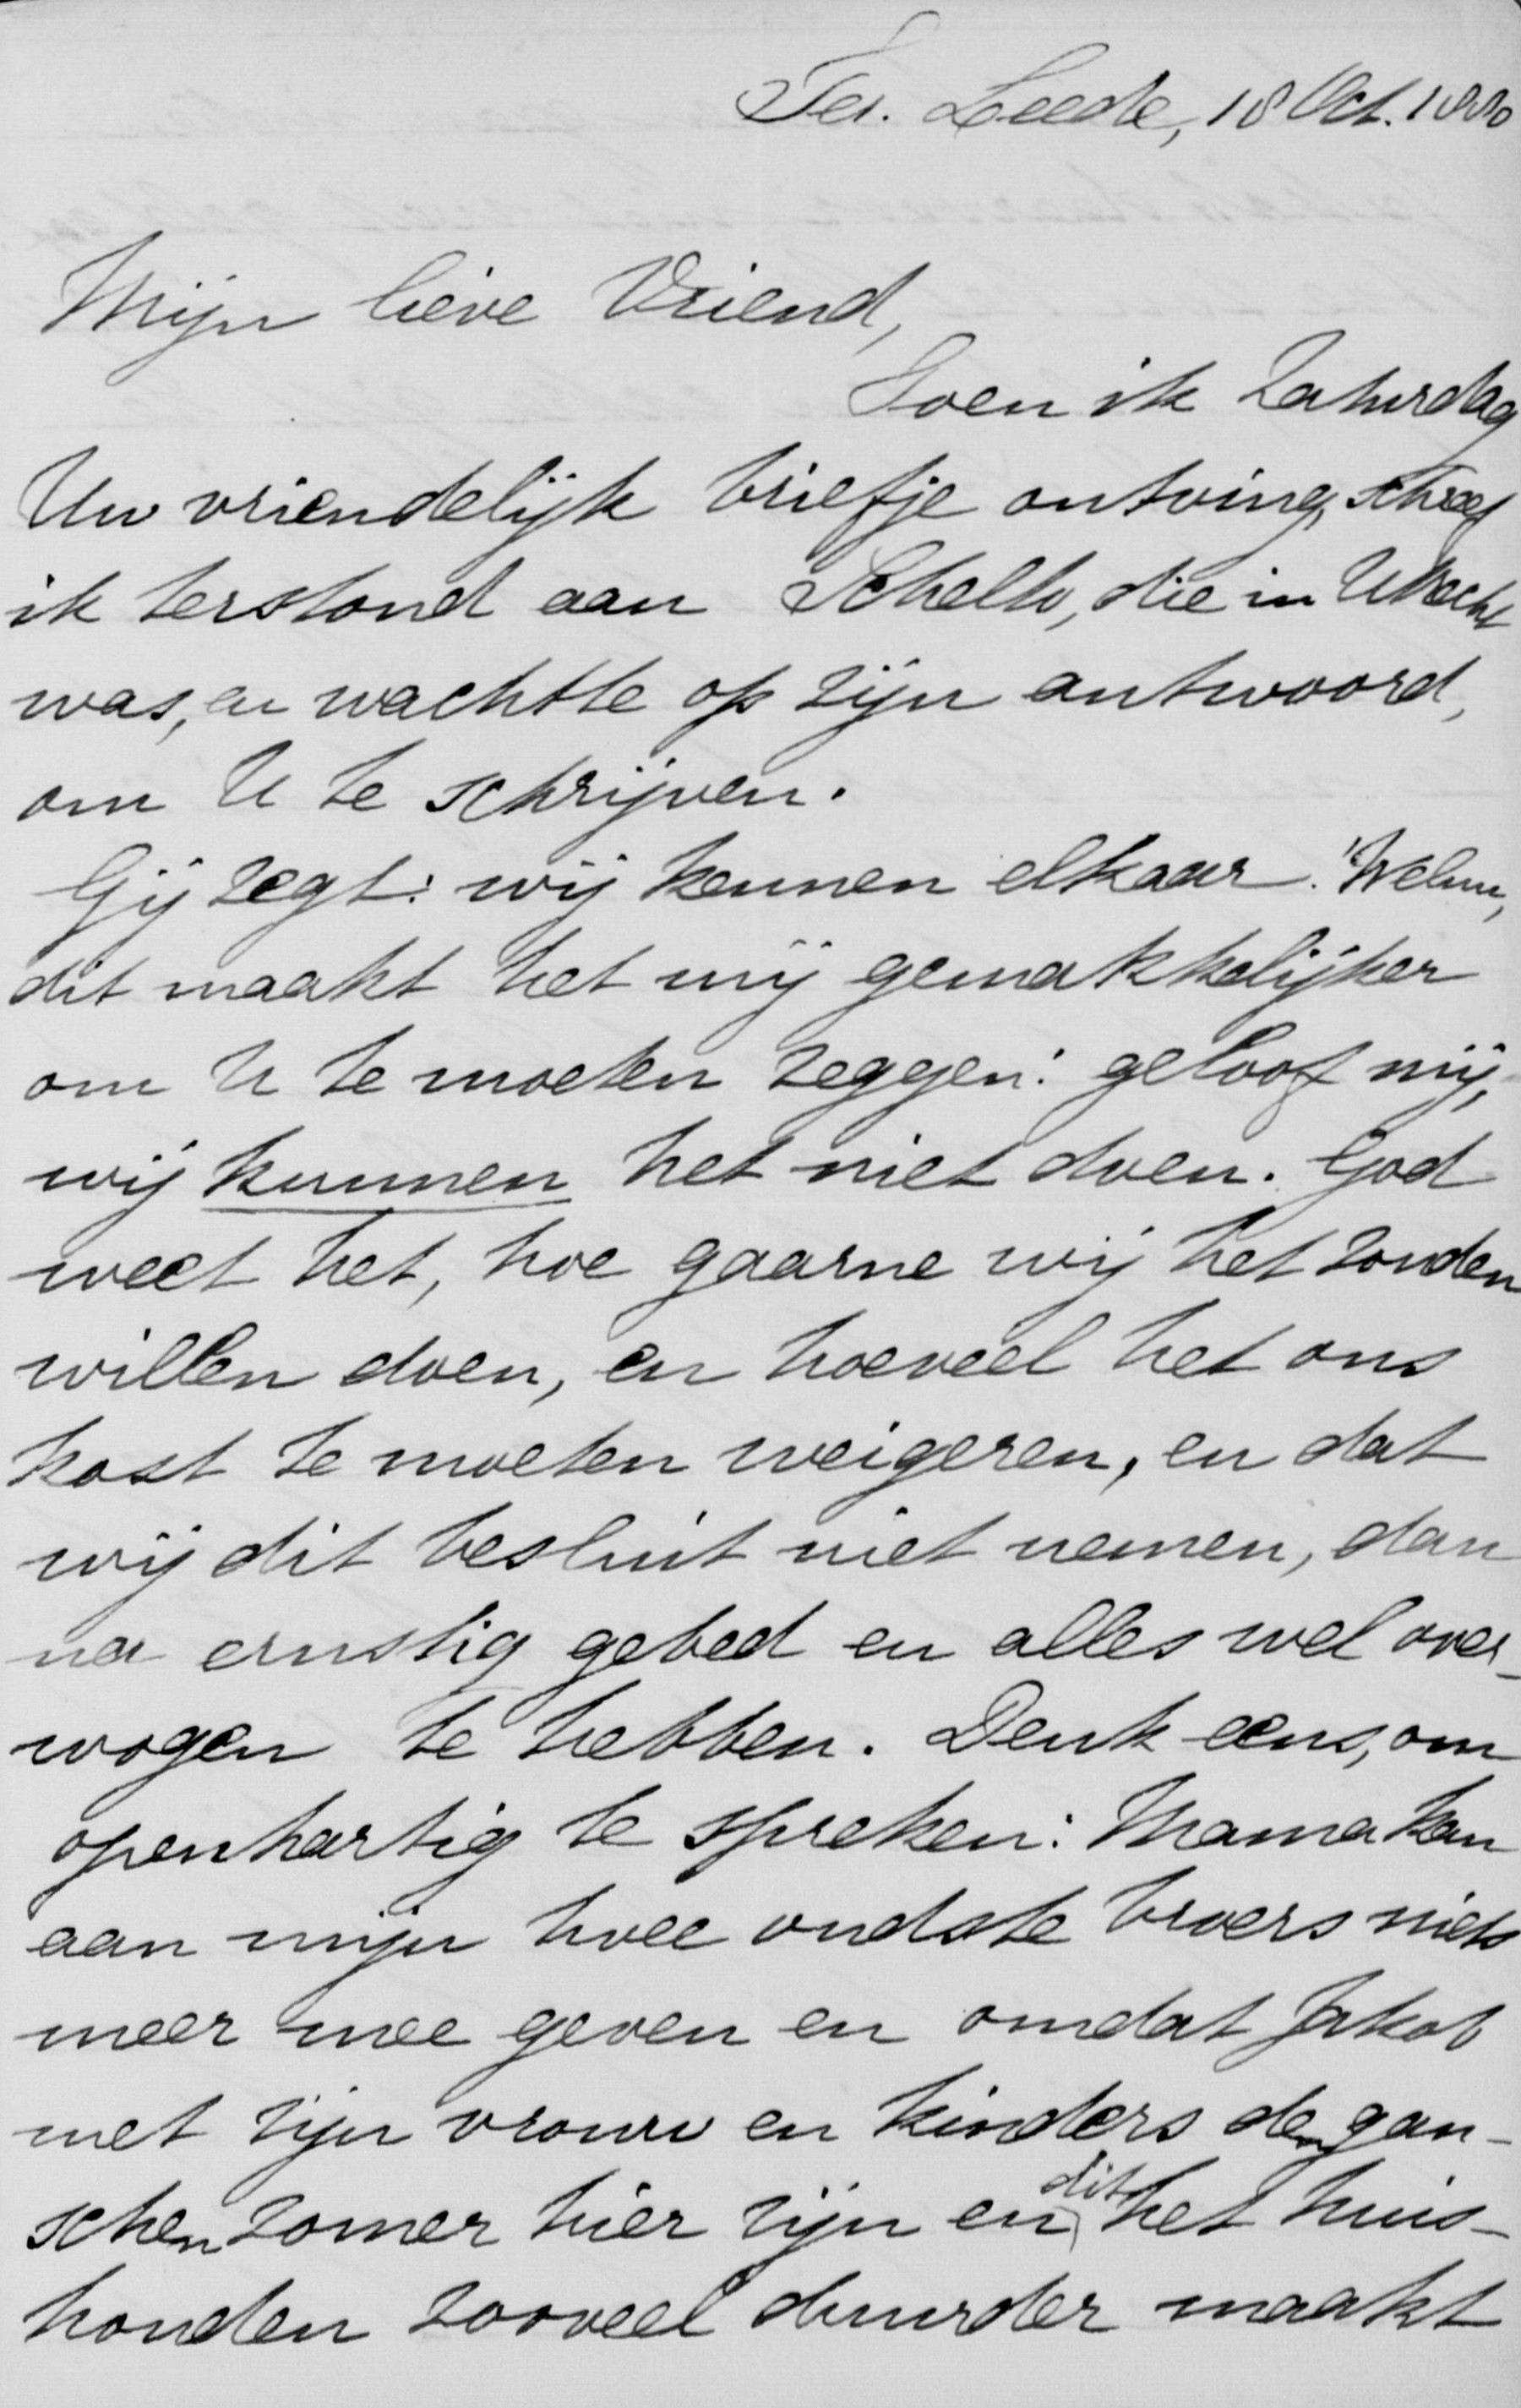 Ter. Leede, 18 Oct. 1880
Mijn lieve Vriend,
Toen ik Zaturdag
Uw vriendelijk briefje ontving, schreef
ik terstond aan Schelto, die in Utrecht
was, en wachtte op zijn antwoord,
om U te schrijven.
Gij zegt: wij kennen elkaar. Welnu,
dit maakt het mij gemakkelijker
om U te moeten zeggen: geloof mij,
wij kunnen het niet doen. God
weet het, hoe gaarne wij het zouden
willen doen, en hoeveel het ons
kost te moeten weigeren, en dat
wij dit besluit niet nemen, dan
na ernstig gebed en alles wel over-
wogen te hebben. Denk eens, om
openhartig te spreken: Mama kan
aan mijn twee oudste broers niets
meer mee geven en omdat Jakob
met zijn vrouw en kinders den gan-
schen zomer hier zijn en dit het huis-
houden zooveel duurder maakt